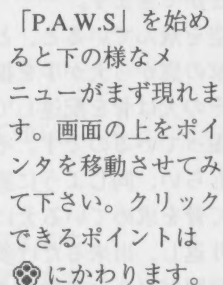 「P.A.W.S」を始め
ると下の様なメ
ニューがまず現れま
す。画面の上をポイ
ンタを移動させてみ
て下さい。クリック
できるポイントは
にかわります。